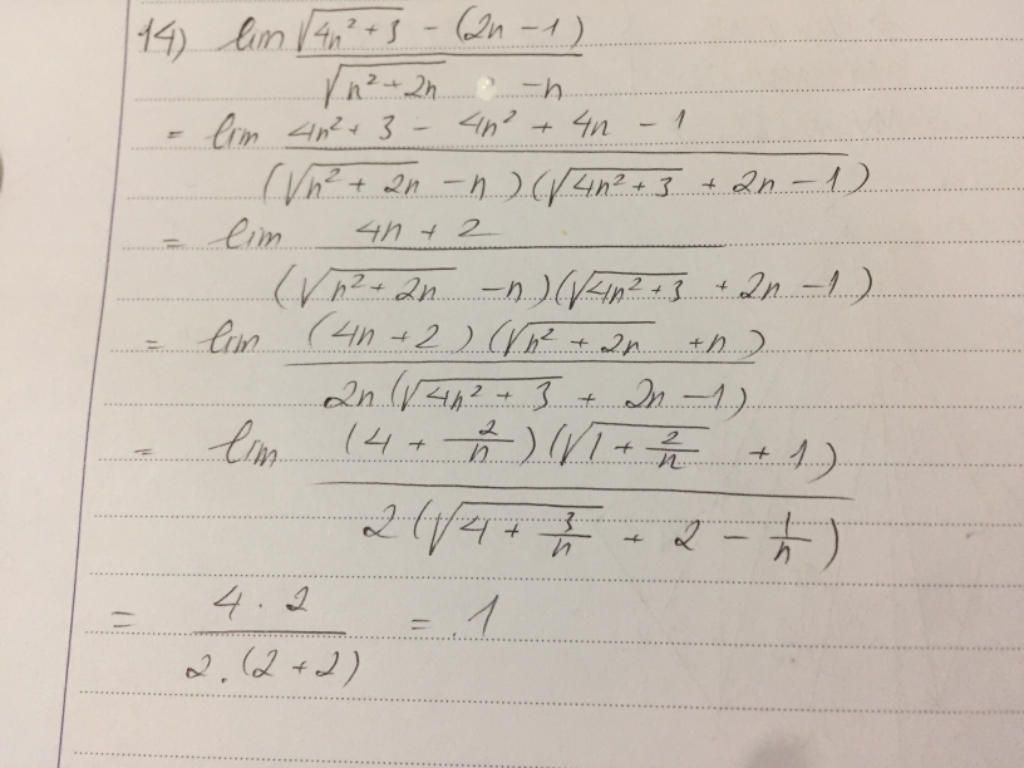 14) lim (√(4n² + 3) - (2n - 1)) / (√(n² + 2n) - n)
= lim (4n² + 3 - 4n² + 4n - 1) / ((√(n² + 2n) - n)(√(4n² + 3) + 2n - 1))
= lim (4n + 2) / ((√(n² + 2n) - n)(√(4n² + 3) + 2n - 1))
= lim ((4n + 2)(√(n² + 2n) + n)) / (2n(√(4n² + 3) + 2n - 1))
= lim ((4 + 2/n)(√(1 + 2/n) + 1)) / (2(√(4 + 3/n) + 2 - 1/n))
= (4 . 2) / (2. (2 + 2)) = 1